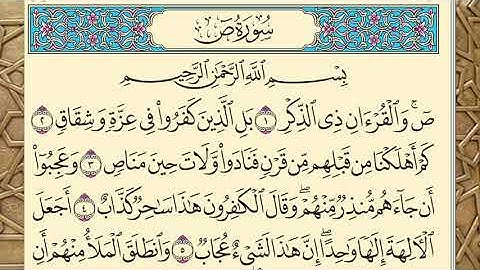 سُورَةُ صٓ
بِسْمِ ٱللَّهِ ٱلرَّحْمَٰنِ ٱلرَّحِيمِ
صٓ ۚ وَٱلْقُرْءَانِ ذِى ٱلذِّكْرِ ١ بَلِ ٱلَّذِينَ كَفَرُوا۟ فِى عِزَّةٍ وَشِقَاقٍ ٢
كَمْ أَهْلَكْنَا مِن قَبْلِهِم مِّن قَرْنٍ فَنَادَوا۟ وَّلَاتَ حِينَ مَنَاصٍ ٣ وَعَجِبُوٓا۟
أَن جَآءَهُم مُّنذِرٌ مِّنْهُمْ ۖ وَقَالَ ٱلْكَٰفِرُونَ هَٰذَا سَٰحِرٌ كَذَّابٌ ٤ أَجَعَلَ
ٱلْـَٔالِهَةَ إِلَٰهًا وَٰحِدًا ۖ إِنَّ هَٰذَا لَشَىْءٌ عُجَابٌ ٥ وَٱنطَلَقَ ٱلْمَلَأُ مِنْهُمْ أَنِ